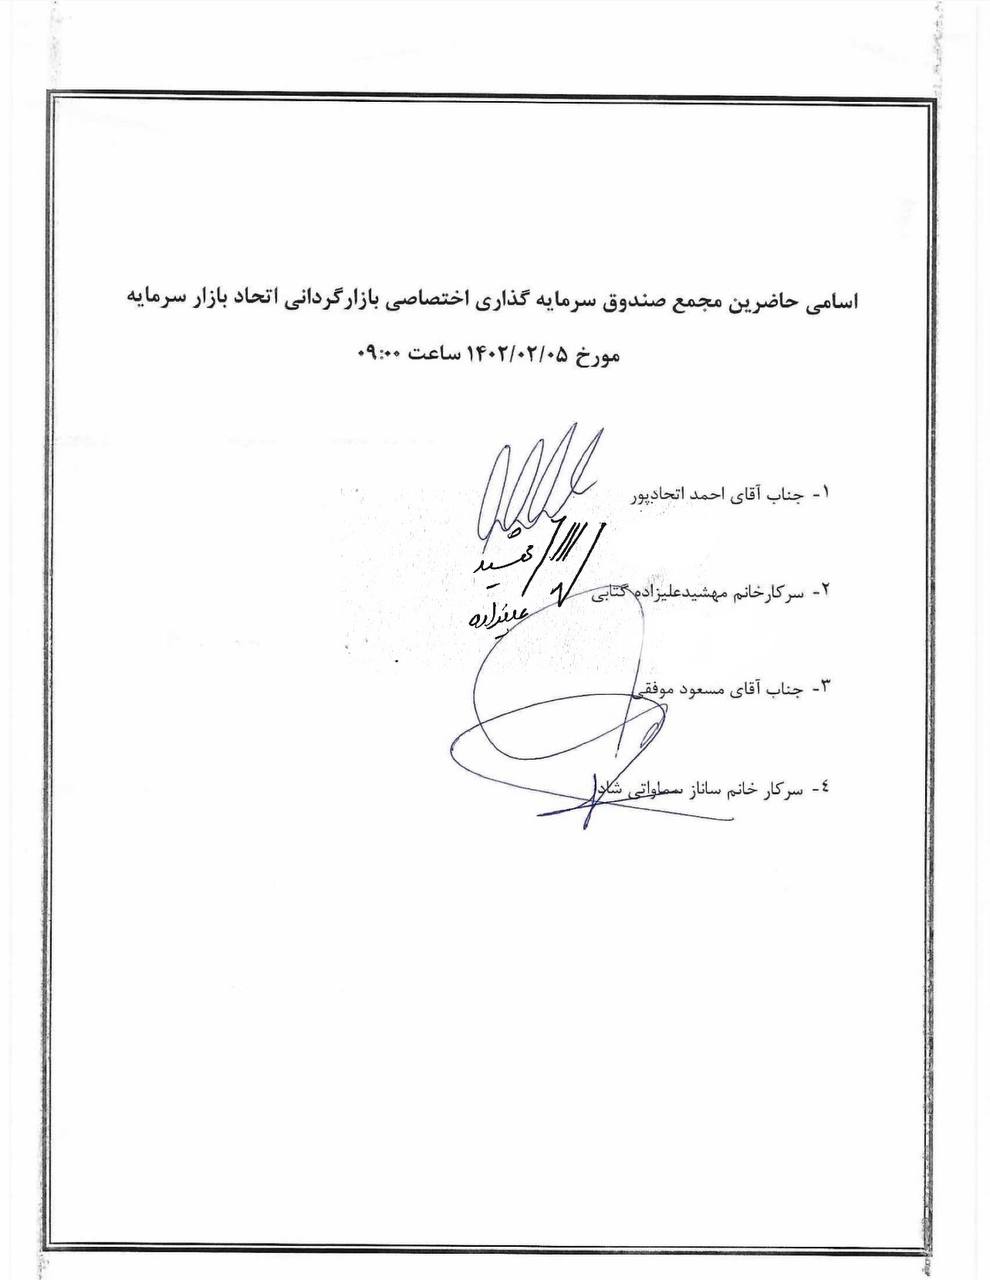 اسامی حاضرین مجمع صندوق سرمایه گذاری اختصاصی بازارگردانی اتحاد بازار سرمایه
مورخ ۱۴۰۲/۰۲/۰۵ ساعت ۰۹:۰۰
۱- جناب آقای احمد اتحادپور
مهشید
۲- سرکارخانم مهشیدعلیزاده گتابی
علیزاده
۳- جناب آقای مسعود موفقی
٤- سرکار خانم ساناز سماواتی شاد